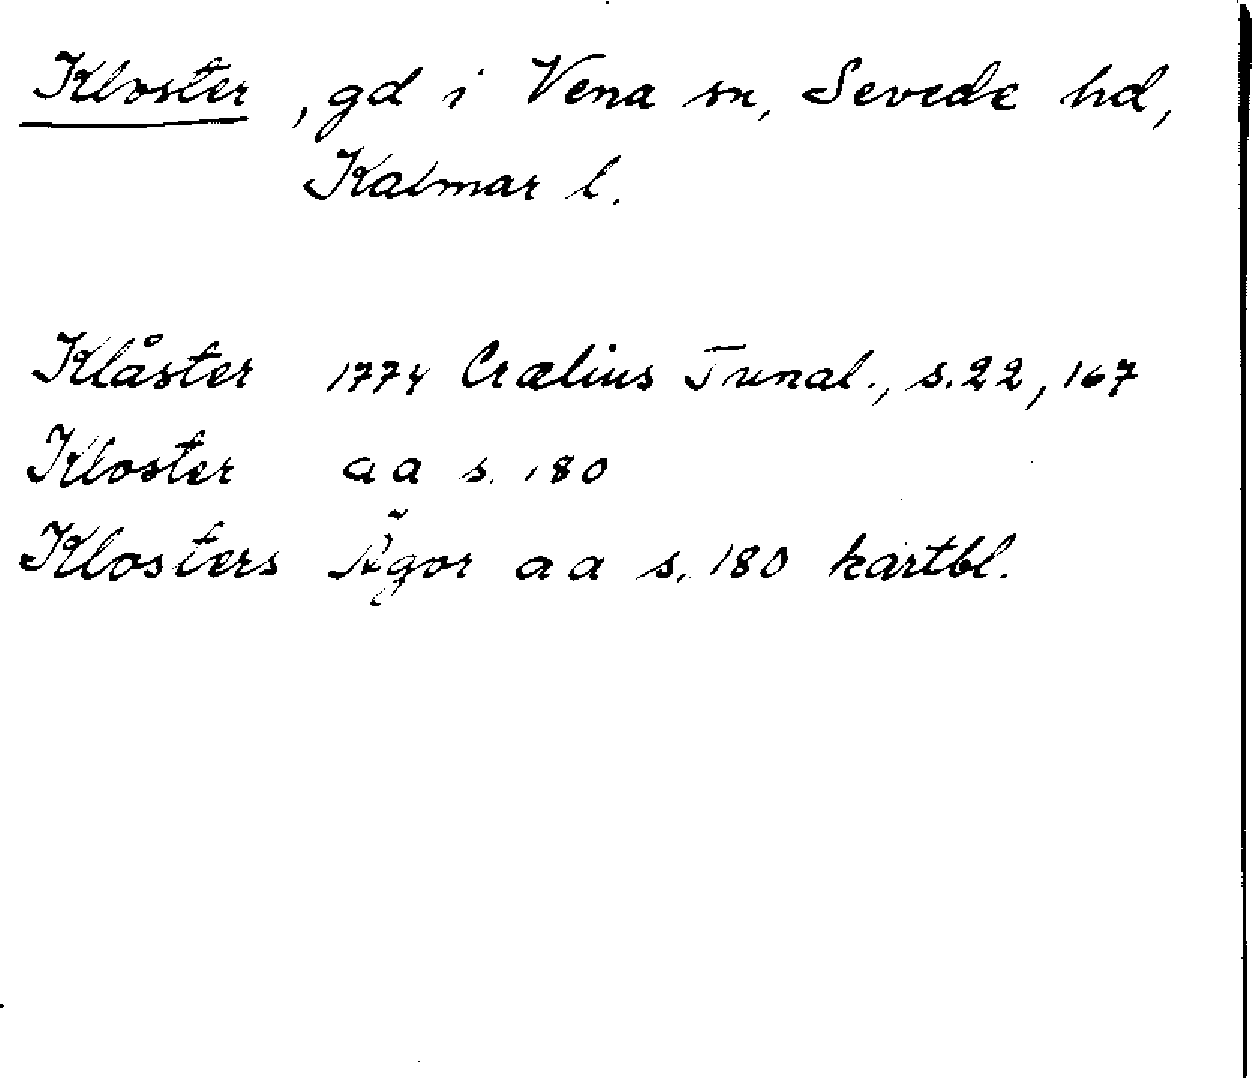 Kloster, gd i Vena sn, Sevede hd,
Kalmar l.
Klåster 1774 Crælius Tunal., s. 22, 167
Kloster aa s. 180
Klosters Ägor aa s. 180 kartbl.